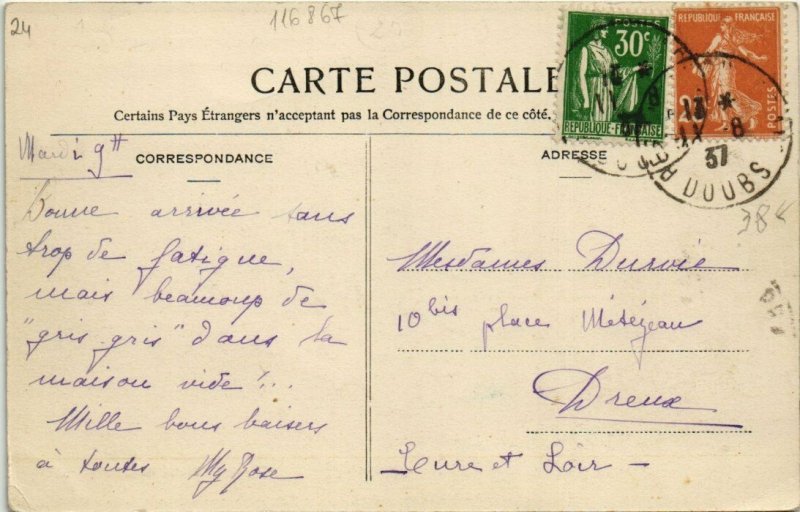 24
116867
CARTE POSTALE
Certains Pays Étrangers n'acceptant pas la Correspondance de ce côté.
POSTES
30c
RÉPUBLIQUE-FRANÇAISE
REPUBLIQUE FRANÇAISE
POSTES
13 *
8
37
DOUBS
Mardi 9H
CORRESPONDANCE
Bonne arrivée sans
trop de fatigue,
mais beaucoup de
"gris gris" dans la
maison vide!...
Mille bons baisers
à toutes My Rose
ADRESSE
38
Mesdames Durvie
10 bis place Métézeau
Dreux
Eure et Loir -